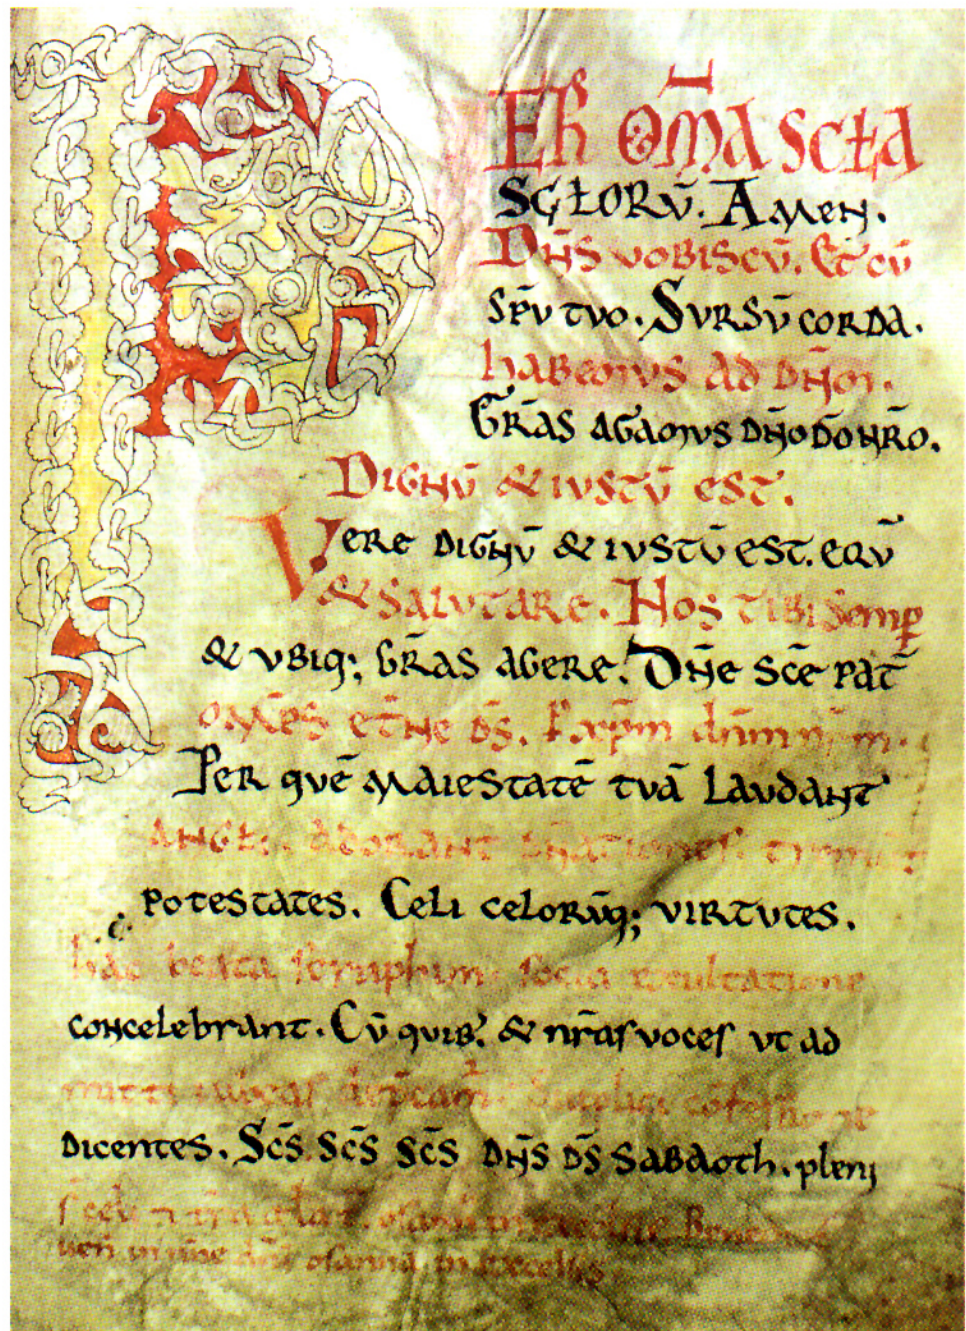 PER OM̄A SCŁA
SCŁORV̄. AMEN.
DN̄S VOBISCV̄. ET CV̄
SPV̄ TVO. SVRSV̄ CORDA.
HABEMVS AD DN̄M.
GR̄AS AGAMVS DN̄O DŌ NR̄O.
DIGNV̄ & IVSTV̄ EST.
VERE DIGNV̄ & IVSTV̄ EST. EQV̄
& SALVTARE. NOS TIBI Semꝑ
& VBIQ; GR̄AS AGERE. DN̄E SC̄E PAT̄
OM̄PS ET̄NE DS̄. P xp̄m dn̄m nr̄m.
PER QVĒ MAIESTATĒ TVĀ LAVDANT
ANGŁI. ADORANT DN̄ATIONES. TREMUNT
POTESTATES. CELI CELORV̄Q; VIRTVTES.
hac beata seraphim. socia exultatione
CONCElebrant. CV̄ QVIB; & nr̄as voces VT AD
mitti iubeas dep̄camr̄. Supplici cōfessione
DICENTES. SC̄S SC̄S SC̄S DN̄S DS̄ SABAOTH. pleni
s̄ celi ⁊ tr̄a gła t̄. osanna in excelsis. Bened
ueñ in nōe dn̄i osanna in excelsis